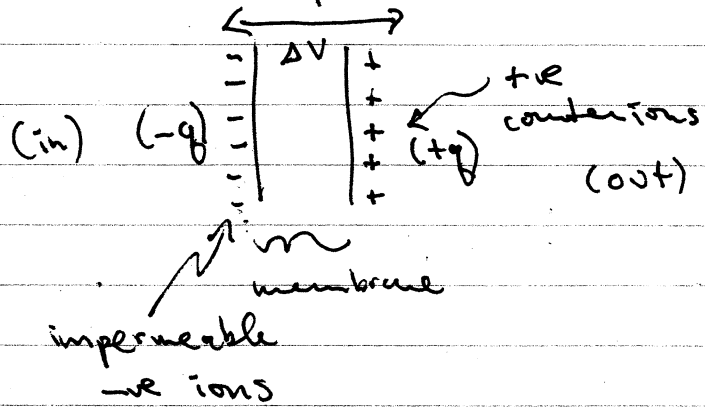 ΔV
+ve
counterions
(in) (-q) (+q)
(out)
membrane
impermeable
-ve ions